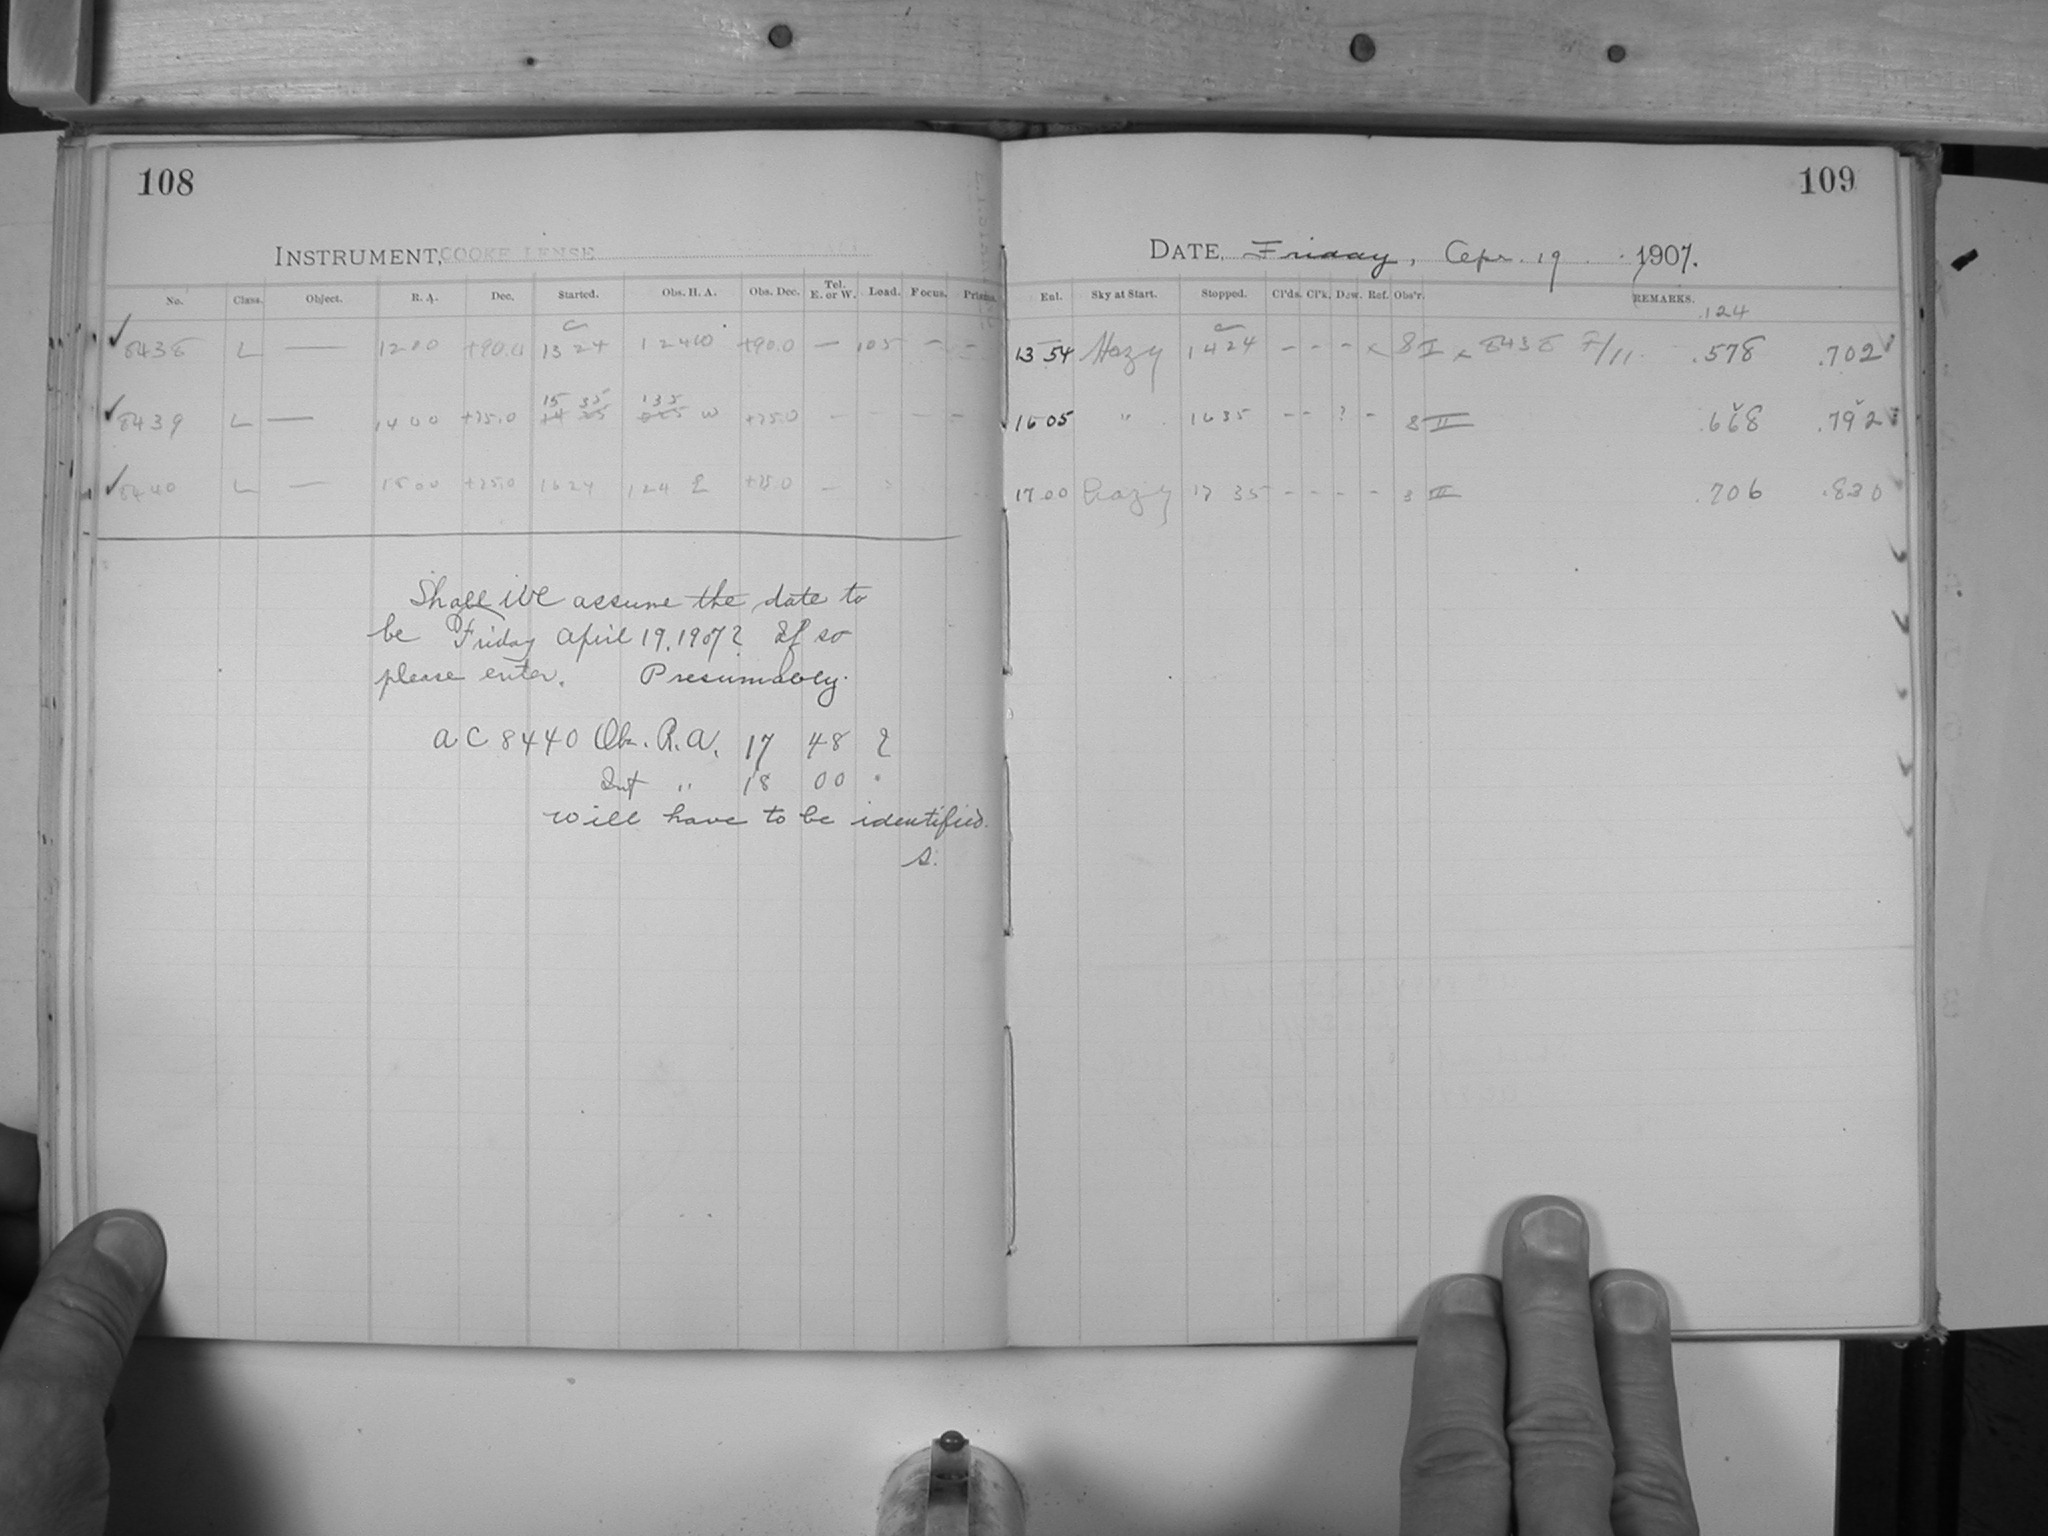 108
INSTRUMENT, COOKE LENSE
No. Class. Object. R. A. Dec. Started. Obs. H. A. Obs. Dec. Tel. E. or W. Load. Focus. Prisms.
8438 L — 1200 +90.0 13 24 1 24 W +90.0 — 105 – –
8439 L — 1400 +75.0 15 35 135 W +75.0 – – – –
8440 L — 1800 +75.0 1624 124 E +75.0 —
Shall we assume the date to
be Friday April 19, 1907? If so
please enter. Presumably.
A C 8440 Ob. R.A. 17 48 ?
Int " 18 00 "
will have to be identified.
S.
109
DATE, Friday, Apr. 19 1907.
Enl. Sky at Start. Stopped. Cl'ds. Cl'k. Dew. Ref. Obs'r. REMARKS.
.124
13 54 Hazy 1424 – – – x 8 I x 8438 F/11 .578 .702
16 05 " 1635 – – ? – 8 II .668 .792
17 00 Hazy 17 35 – – – – 8 III .706 .830